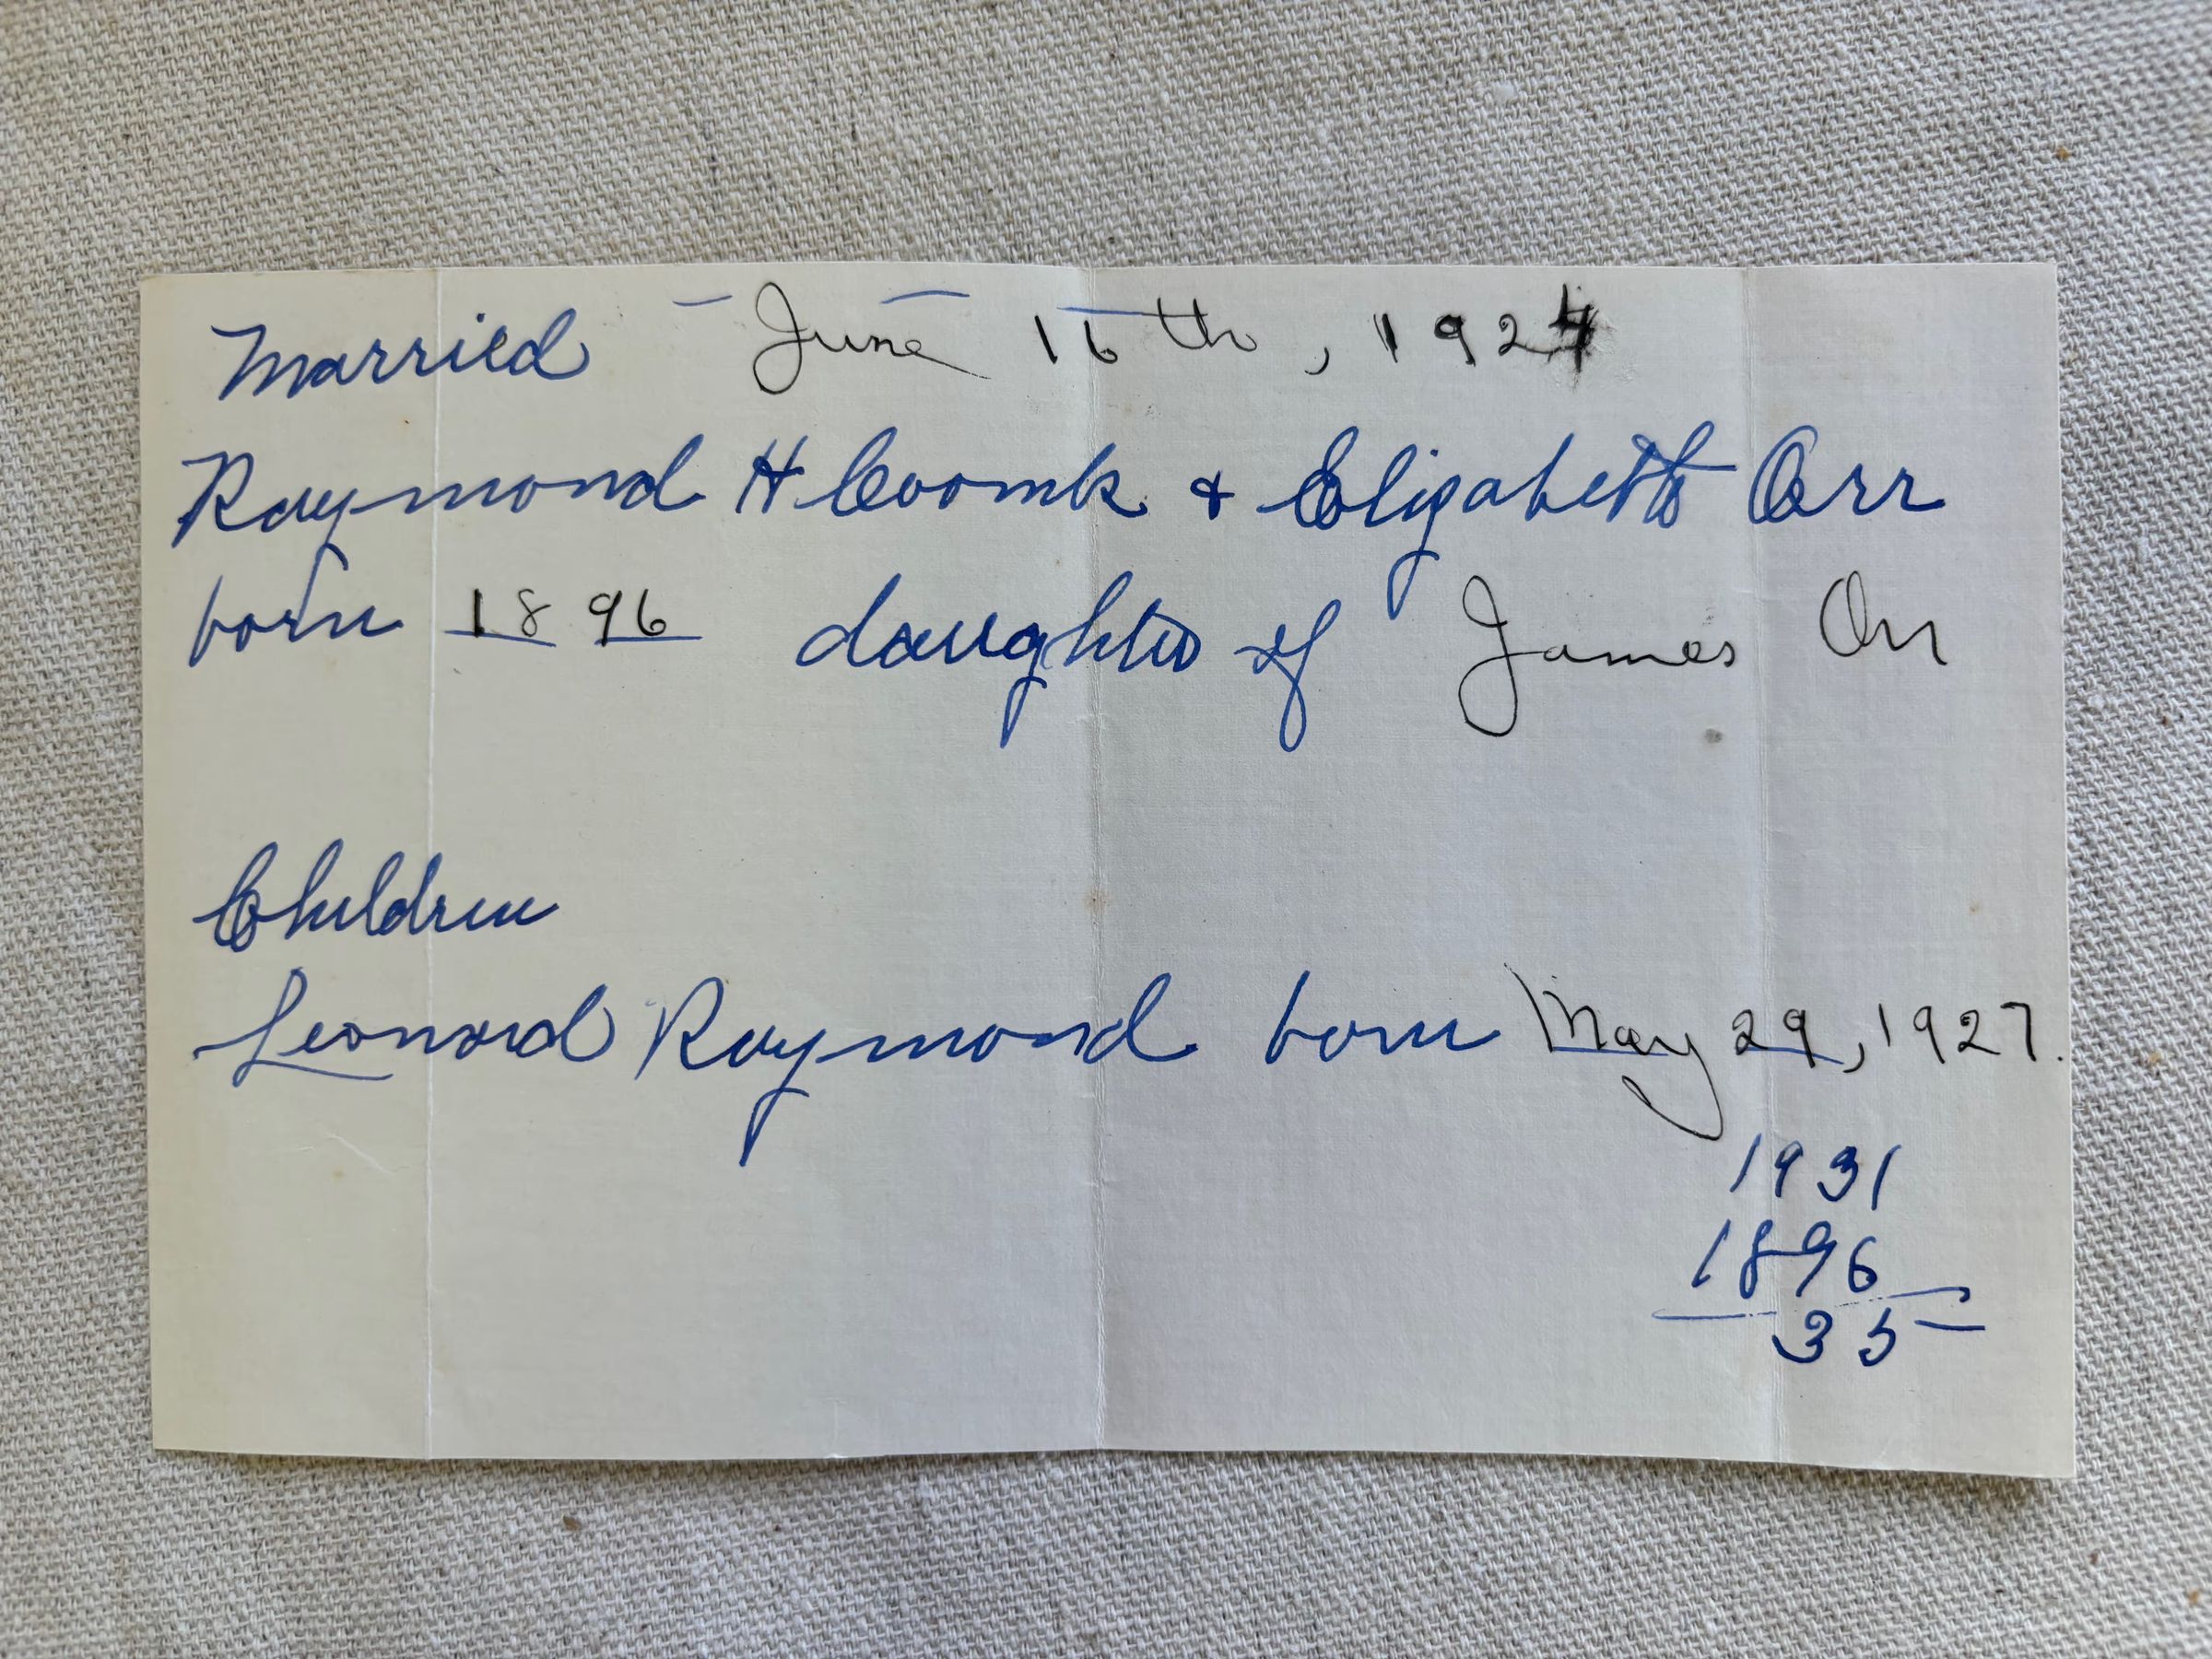 Married - June 16th, 1924
Raymond H Coombs & Elizabeth Orr
born 1896 daughter of James Orr
Children
Leonard Raymond born May 29, 1927.
1931
1896
35